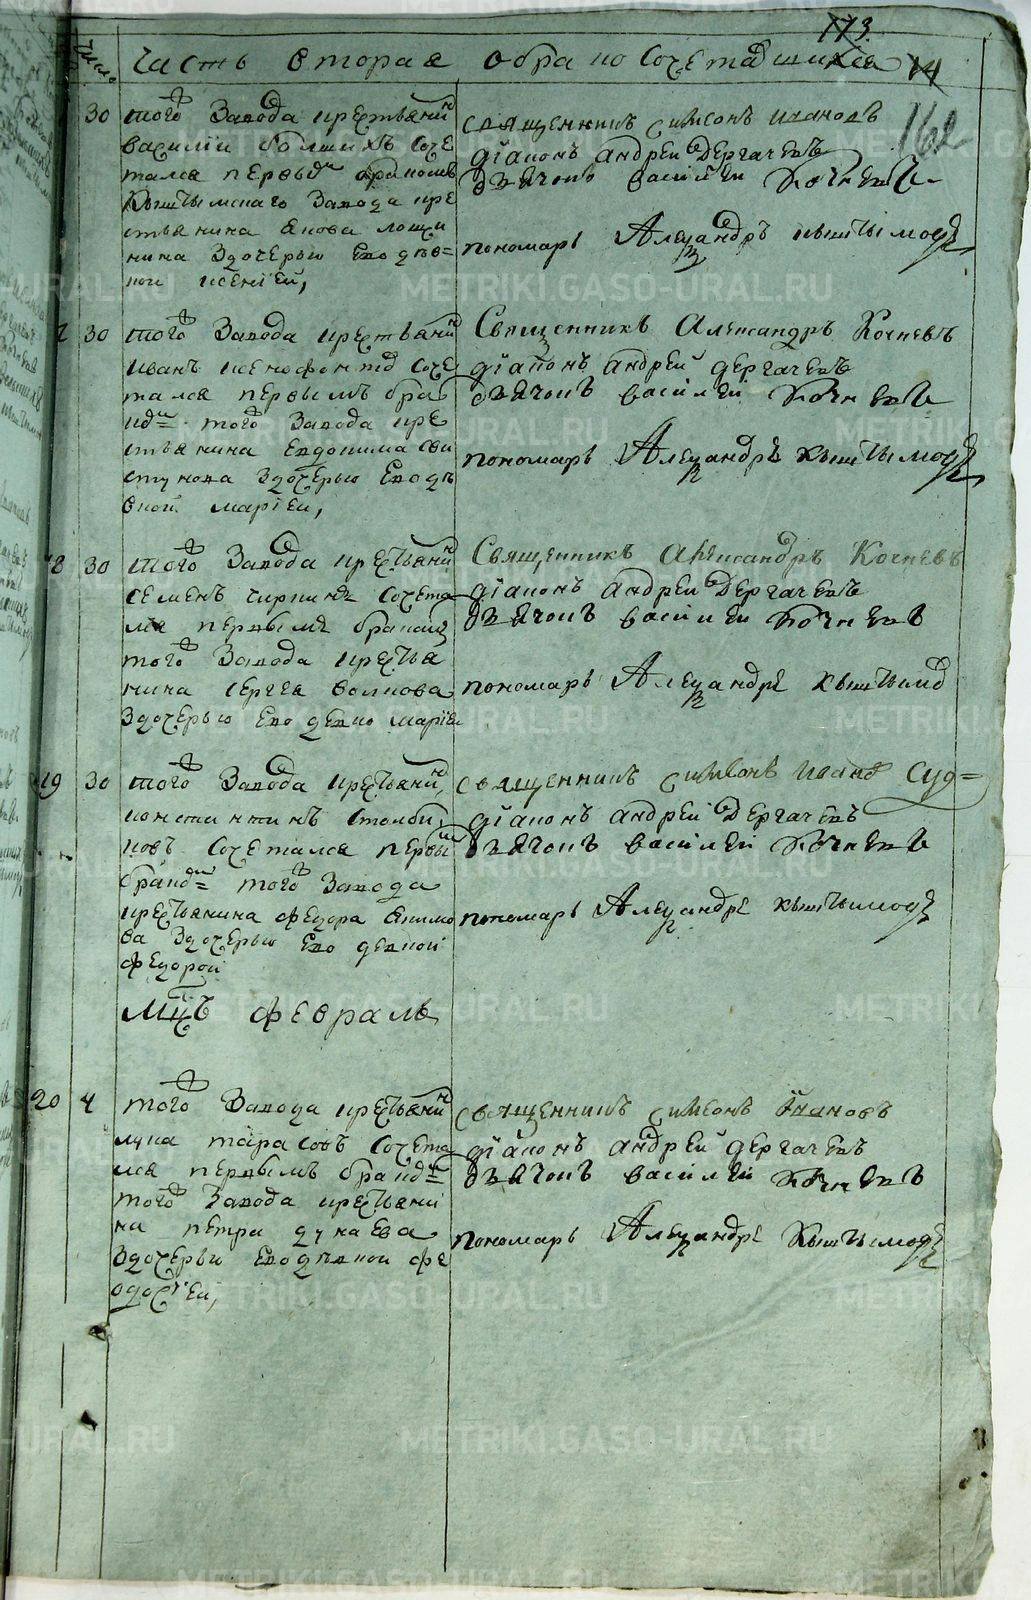 173.
Число Часть вторая обракосочетавшихся 14
162
30 того Завода крестьянин
василии болших соче
тался первым бракомъ
Кыштымскаго Завода кре
стьянина якова
нина Здочерью Его дев=
кой ксенiей,
священникъ симеонъ Ивановъ
дiаконъ андреи дергачевъ
дьячокъ василеи Кочневъ
пономарь Александръ кыштымовъ
7 30 того Завода крестьянин
иванъ ксенофонтов соче
тался первымъ брако
того Завода кре
стьянина Евдокима сви
стунова Здочерью Его дѣ
вкой марiеи,
Священникъ Александръ Кочневъ
дiаконъ андреи дергачевъ
дьячокъ василеи Кочневъ
пономарь Александръ кыштымовъ
8 30 того Завода крестьянин
семенъ чиркинъ сочета
лся первымъ бракомъ
того Завода крестья
нина сергея волкова
Здочерью Ево девкою марiеи
Священникъ Александръ Кочневъ
дiаконъ андреи дергачевъ
дьячокъ василеи Кочневъ
пономарь Александръ кыштымов
19 30 того Завода крестьянин,
констинтинъ столби
ковъ сочетался первым
браком того Завода
крестьянина федора якимо
ва Здочерью Ево девкой
федорой
священникъ симеонъ Иванов Суд=
дiаконъ андреи дергачевъ
дьячокъ василеи Кочневъ
пономарь Александръ кыштымовъ
мцъ февраль
20 4 того Завода крестьянин
лука тарасовъ сочета
лся первымъ браком
того Завода крестьяни
на петра дунаева
Здочерью Его девкой фе
одосiеи,
священникъ симеонъ Ивановъ
дiаконъ андреи дергачевъ
дьячокъ василеи Кочневъ
пономарь Александръ Кыштымовъ
METRIKI.GASO-URAL.RU